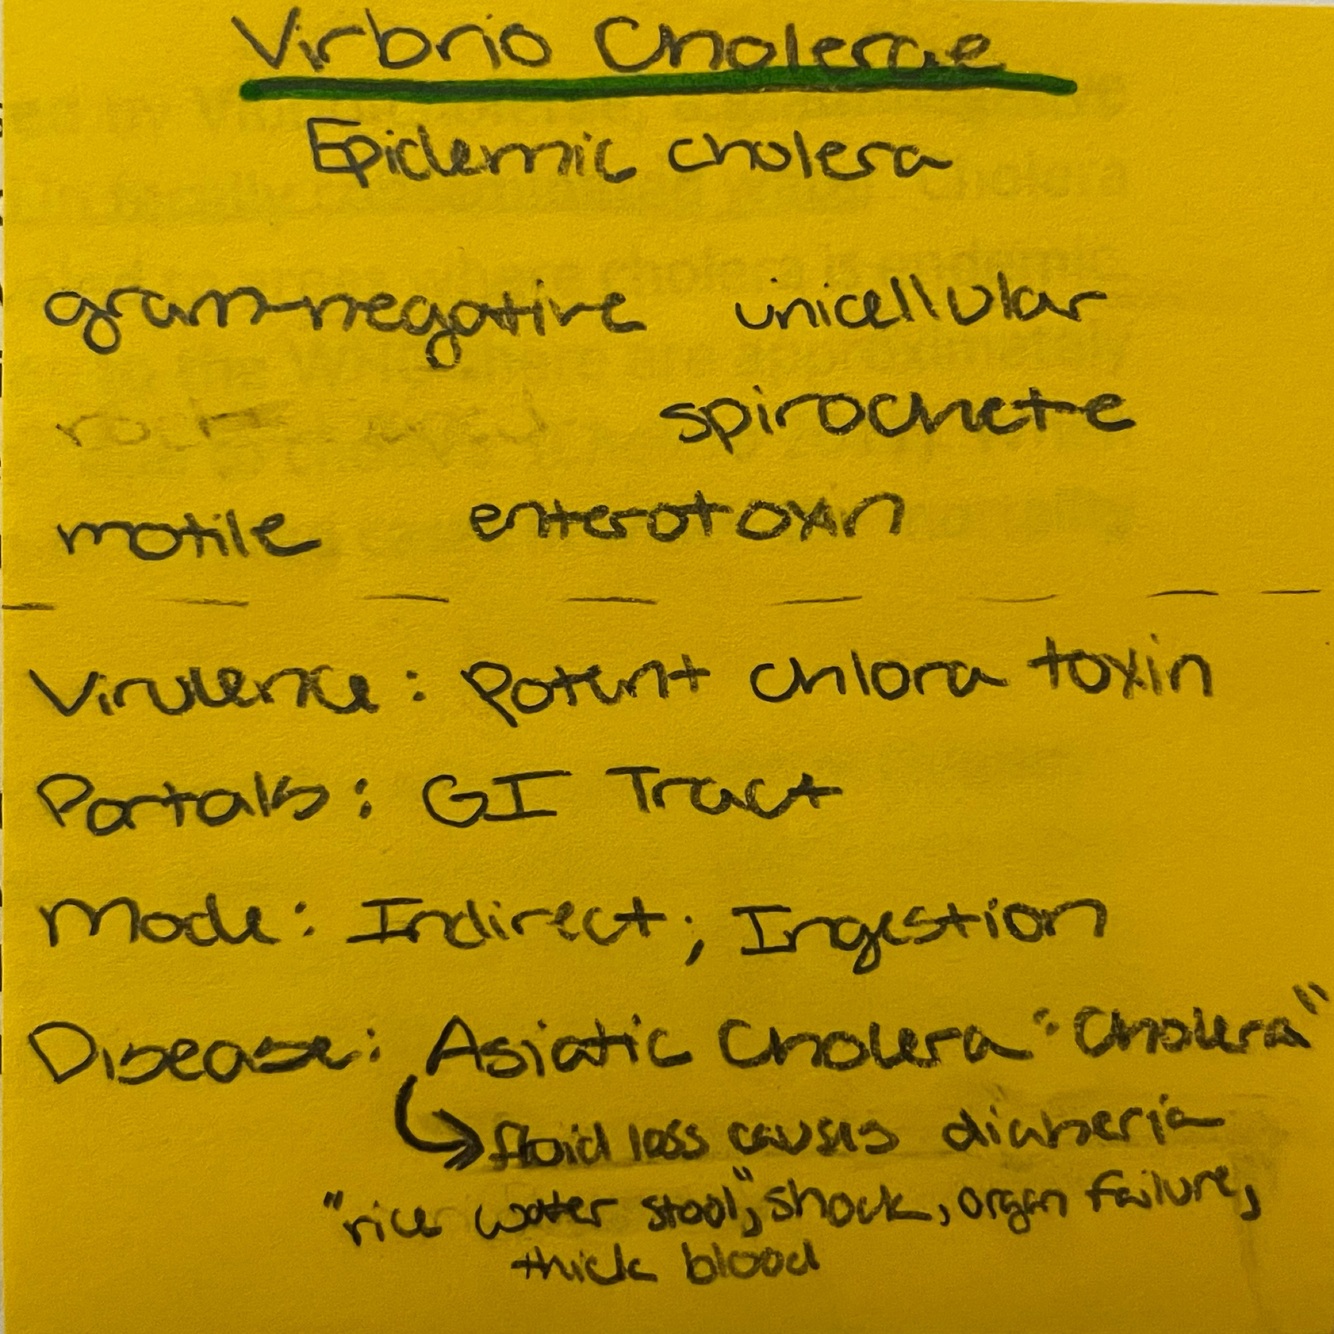 Virbrio Cholerae
Epidemic cholera
gram-negative unicellular
spirochete
motile enterotoxin
Virulence: Potent chlora toxin
Portals: GI Tract
Mode: Indirect; Ingestion
Disease: Asiatic Cholera "Cholera"
fluid loss causes diaherria
"rice water stool", shock, organ failure,
thick blood